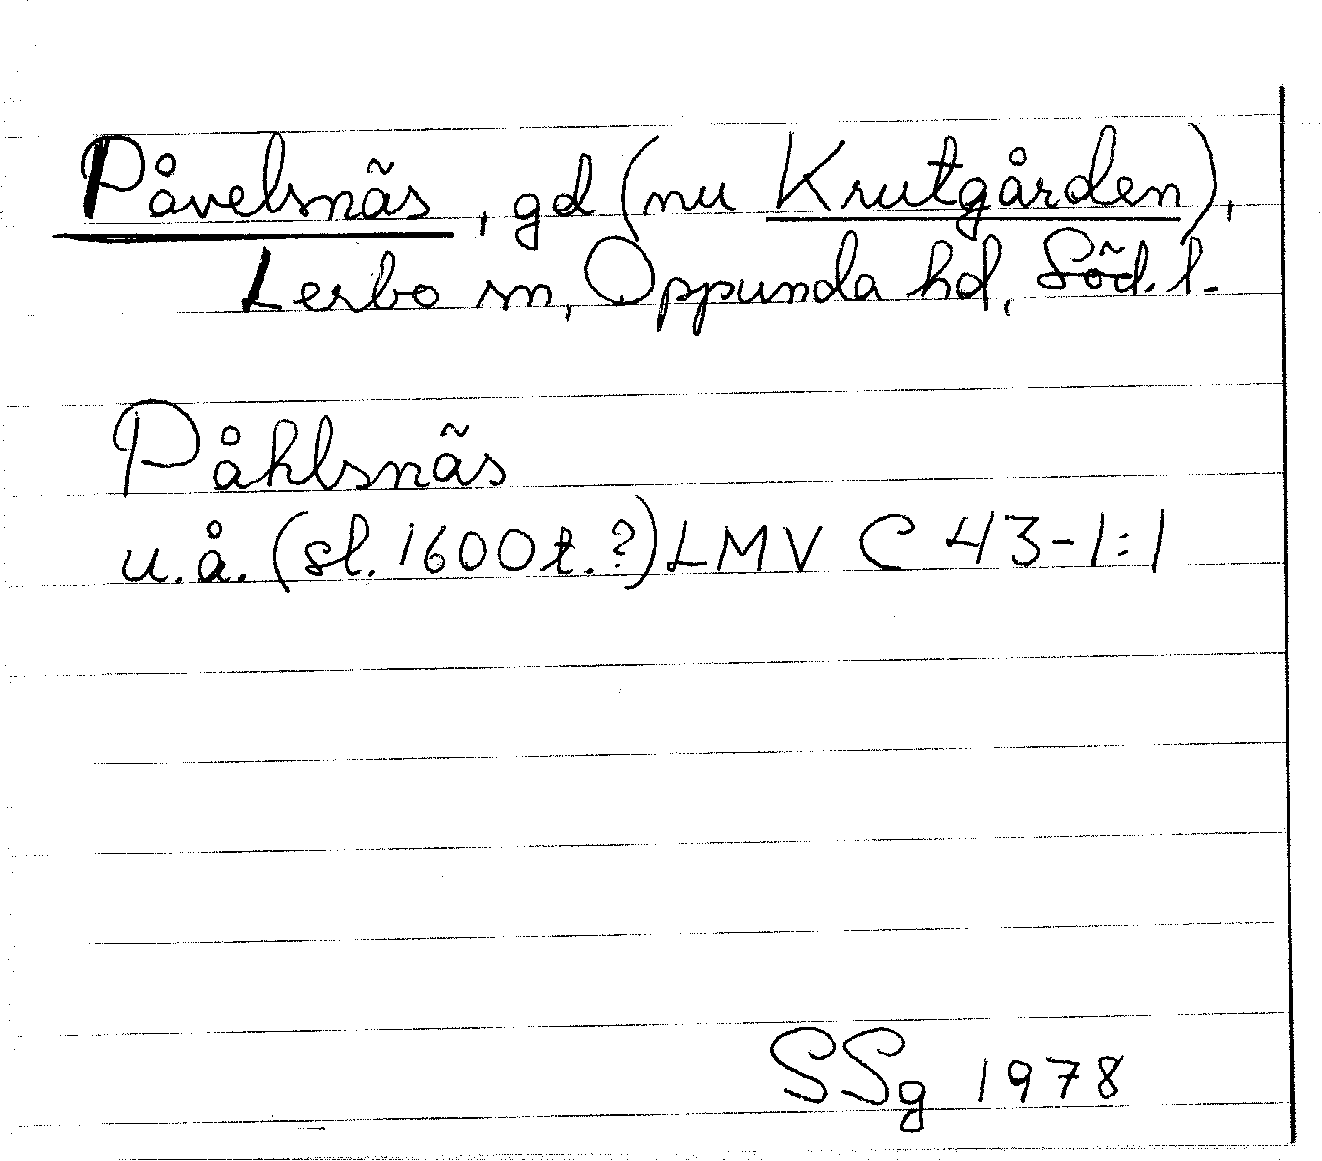 Påvelsnäs, gd (nu Krutgården),
Lerbo sn, Oppunda hd, Söd. l.
Påhlsnäs
u.å. (sl. 1600t.?) LMV C 43-1:1
SSg 1978